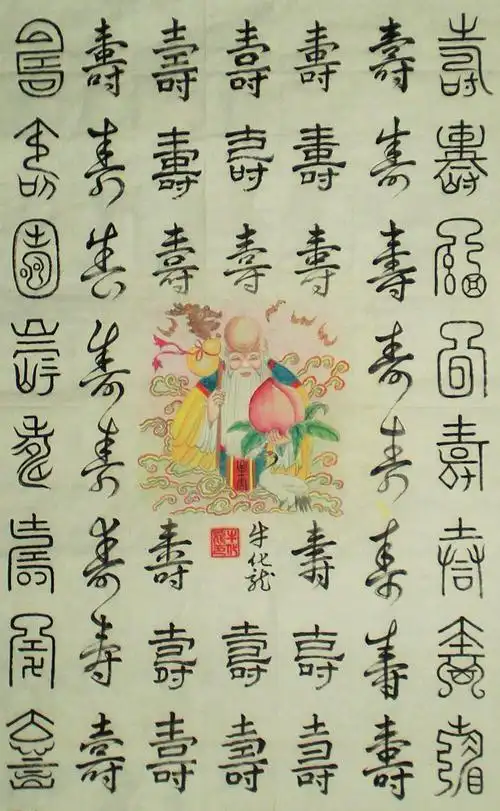 壽壽壽壽壽壽壽壽
壽壽壽壽壽壽壽壽
壽壽壽
壽壽壽
壽壽壽
牛化龍
壽壽
壽壽壽
壽壽壽
壽壽壽壽壽壽壽壽
壽壽壽壽壽壽壽壽